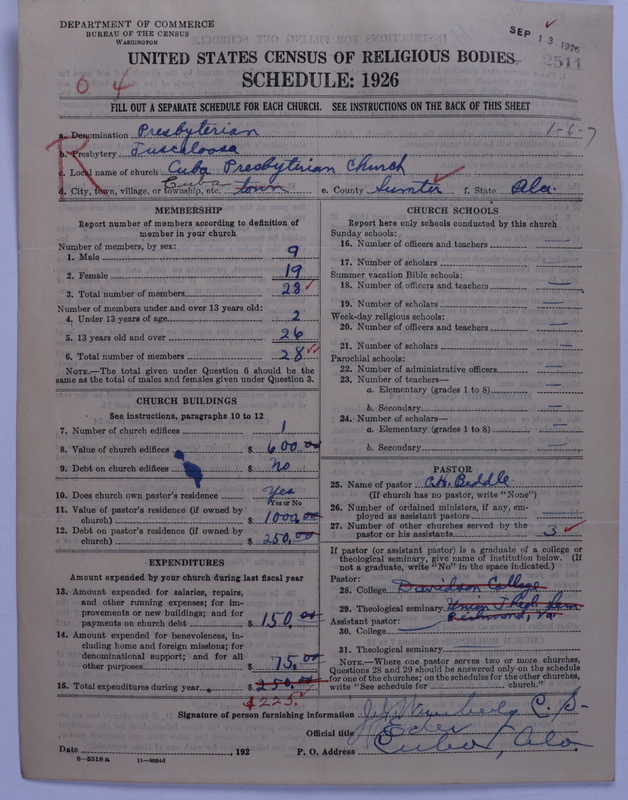 DEPARTMENT OF COMMERCE
BUREAU OF THE CENSUS
WASHINGTON
SEP 13 1926
2511
UNITED STATES CENSUS OF RELIGIOUS BODIES
SCHEDULE: 1926
FILL OUT A SEPARATE SCHEDULE FOR EACH CHURCH. SEE INSTRUCTIONS ON THE BACK OF THIS SHEET
R
a. Denomination Presbyterian
1-6-7
b. Presbytery Tuscaloosa
c. Local name of church Cuba Presbyterian Church
d. City, town, village, or township, etc. Cuba town e. County Sumter f. State Ala.
MEMBERSHIP
Report number of members according to definition of member in your church
Number of members, by sex:
1. Male 9
2. Female 19
3. Total number of members 28
Number of members under and over 13 years old:
4. Under 13 years of age 2
5. 13 years old and over 26
6. Total number of members 28
NOTE.—The total given under Question 6 should be
same as the total of males and females given under Question 3.
CHURCH BUILDINGS
See instructions, paragraphs 10 to 12
7. Number of church edifices 1
8. Value of church edifices $ 600.00
9. Debt on church edifices $ no
10. Does church own pastor's residence Yes
Yes or No
11. Value of pastor's residence (if owned by
church) $ 1000.00
12. Debt on pastor's residence (if owned by
church) $ 250.00
EXPENDITURES
Amount expended by your church during last fiscal year
13. Amount expended for salaries, repairs,
and other running expenses; for im-
provements or new buildings; and for
payments on church debt $ 150.00
14. Amount expended for benevolences, in-
cluding home and foreign missions; for
denominational support; and for all
other purposes $ 75.00
15. Total expenditures during year $ 250.00
$225.
CHURCH SCHOOLS
Report here only schools conducted by this church
Sunday schools:
16. Number of officers and teachers —
17. Number of scholars —
Summer vacation Bible schools:
18. Number of officers and teachers —
19. Number of scholars —
Week-day religious schools:
20. Number of officers and teachers —
21. Number of scholars —
Parochial schools:
22. Number of administrative officers —
23. Number of teachers—
a. Elementary (grades 1 to 8) —
b. Secondary —
24. Number of scholars—
a. Elementary (grades 1 to 8) —
b. Secondary —
PASTOR
25. Name of pastor Biddle
(If church has no pastor, write "None")
26. Number of ordained ministers, if any, em-
ployed as assistant pastors
27. Number of other churches served by the
pastor or his assistants 3
If pastor (or assistant pastor) is a graduate of a college or
theological seminary, give name of institution below. (If
not a graduate, write "No" in the space indicated.)
Pastor:
28. College Davidson College
29. Theological seminary Union Theol. Sem
Richmond, Va.
Assistant pastor:
30. College
31. Theological seminary
NOTE.—Where one pastor serves two or more churches,
Questions 28 and 29 should be answered only on the schedule
for one of the churches; on the schedules for the other churches,
write "See schedule for church."
Signature of person furnishing information C. S.
Official title Elder
Date , 192 P. O. Address Cuba, Ala
6—5518a 11—9554d